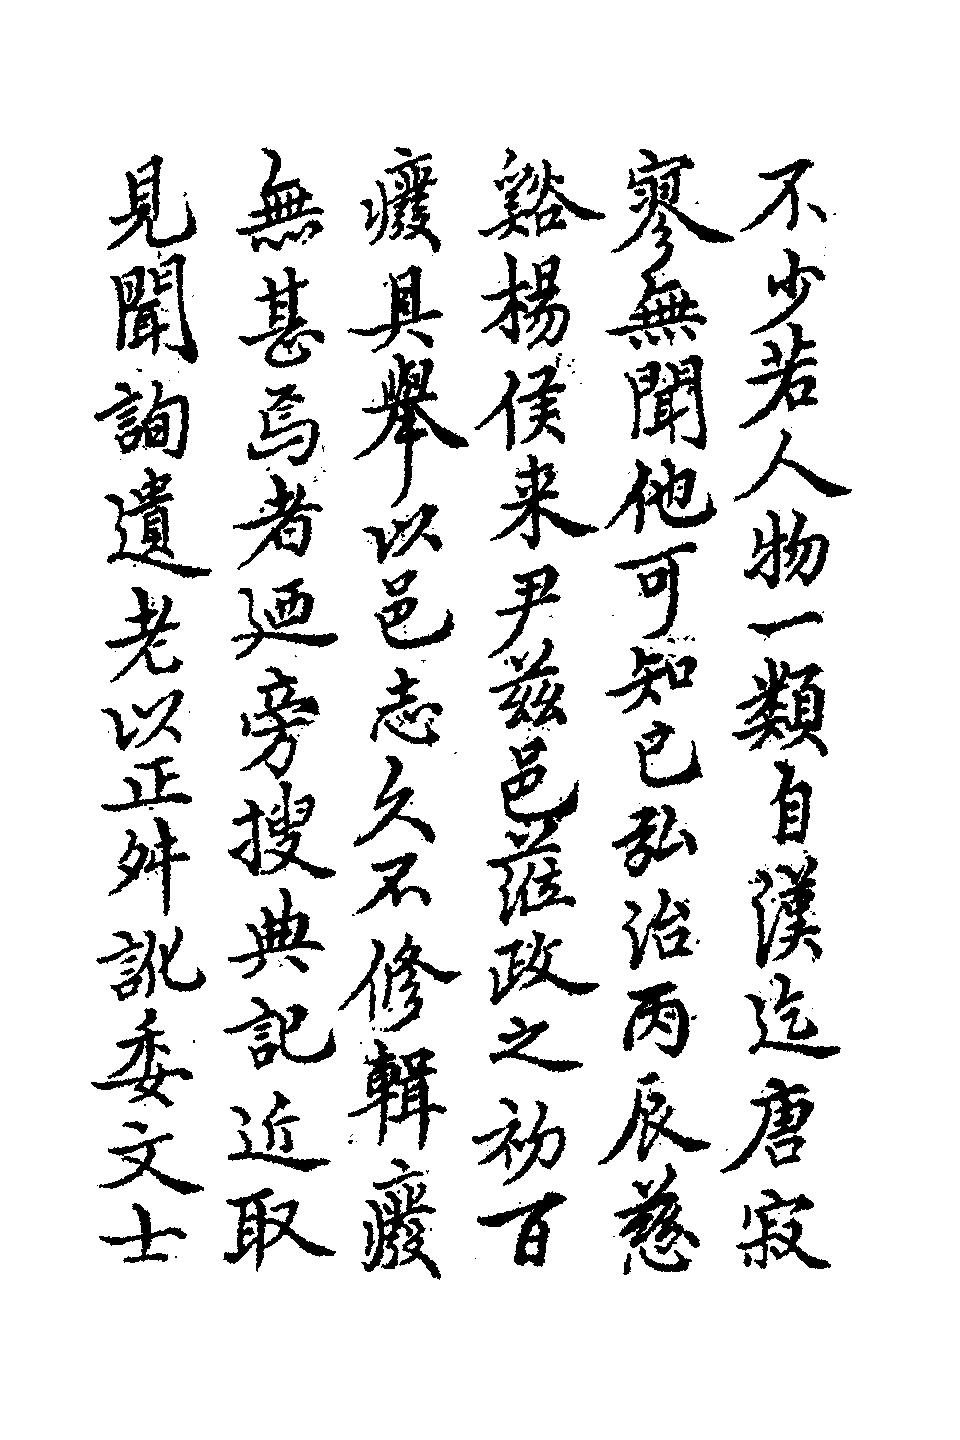 不少若人物一類自漢迄唐寂
寥無聞他可知已弘治丙辰慈
谿楊侯来尹茲邑蒞政之初百
癈具舉以邑志久不修輯癈
無甚焉者廼旁搜典記近取
見聞詢遺老以正舛訛委文士